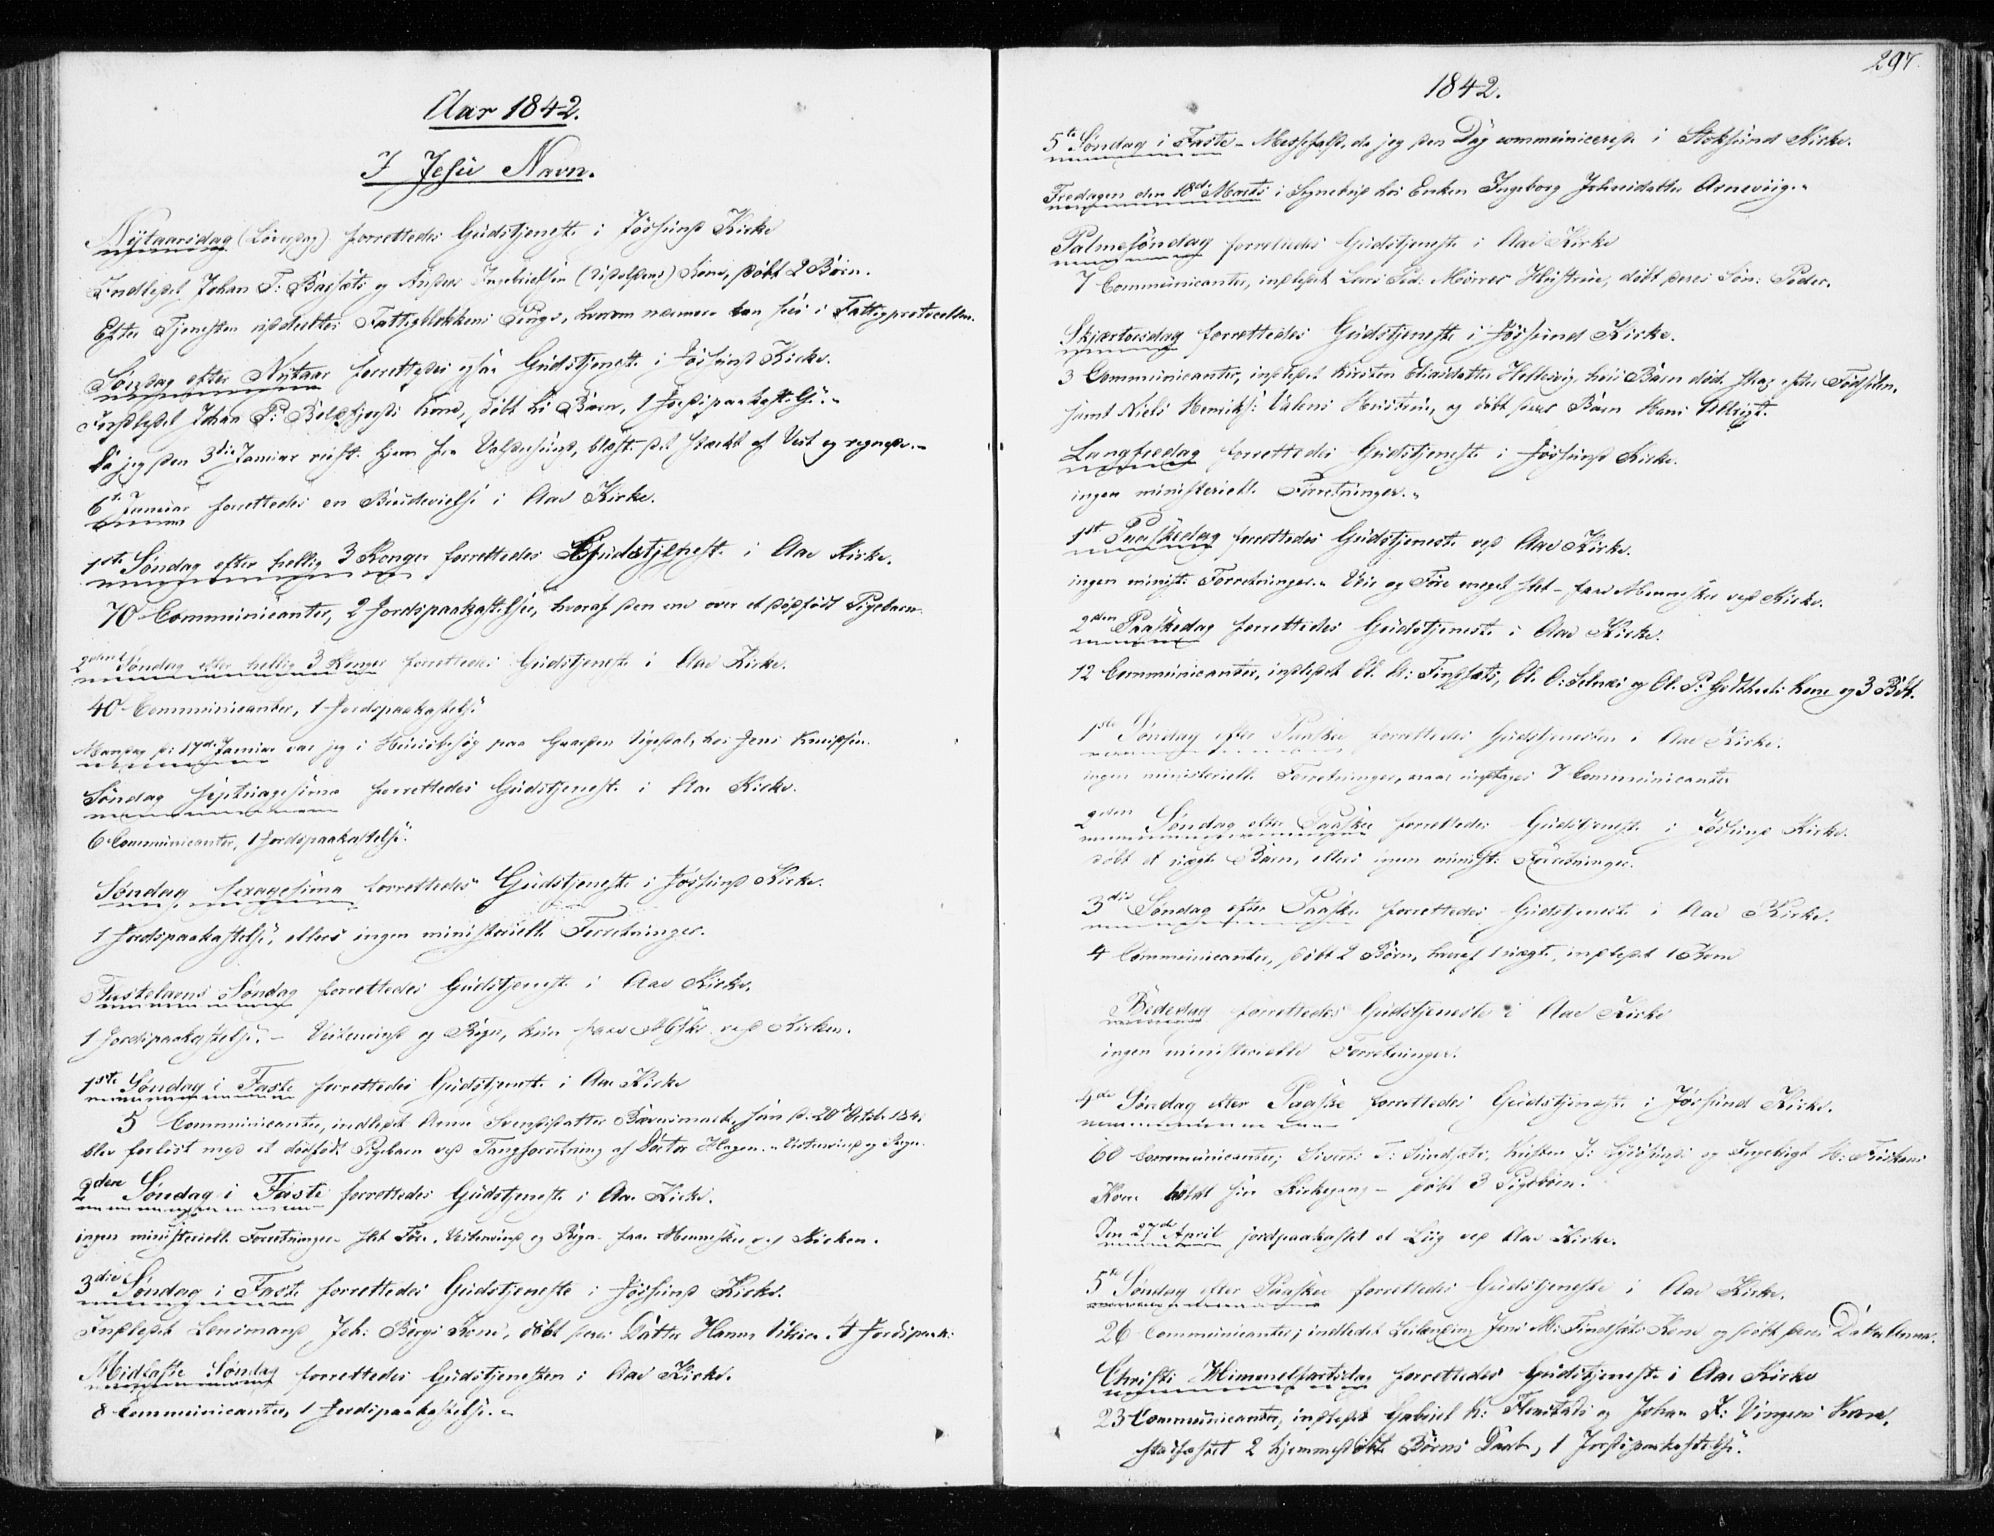 Aar 1842.
I Jesu Navn.
Nytaarsdag (Løverdag) forrettedes Gudstjeneste i Jøssund Kirke
Indledet Johan T: Barsæts og Anders Kone, døbt 2 Børn.
Efter Tjenesten uddeeltes Fattigblokkens Penge, hvorom nærmere kan sees i Fattigprotocollen.
Søndag efter Nytaar forrettedes ogsaa Gudstjeneste i Jøssund Kirke.
Indledet Johan P: Kone, døbt Børn, 1 Jordspaakastelse.
Da jeg den 3die Januar reiste hjem fra Valdersund, blæste det stærkt af Vest og regnede.
6te Januar forrettedes en Brudevielse i Aae Kirke.
1ste Søndag efter hellig 3 Konger forrettedes Gudstjeneste i Aae Kirke.
70 Communicanter, 2 Jordspaakastelser, hvoraf den ene over et dødfødt Pigebarn.
2den Søndag efter hellig 3 Konger forrettedes Gudstjeneste i Aae Kirke.
40 Communicanter, 1 Jordspaakastelse
Mandag d: 17de Januar var jeg i Huusbesøg paa Gaarden hos Jens Knudsen.
Søndag septuagesima forrettedes Gudstjeneste i Aae Kirke.
6 Communicanter, 1 Jordspaakastelse.
Søndag sexagesima forrettedes Gudstjeneste i Jøssund Kirke.
1 Jordspaakastelse, ellers ingen ministerielle Forretninger.
Fastelavns Søndag forrettedes Gudstjeneste i Aae Kirke.
1 Jordspaakastelse. - og Regn, kun faae ved Kirken.
1ste Søndag i Faste forrettedes Gudstjeneste i Aae Kirke
5 Communicanter, indledet Anne hun d. 20de Octobr 1841
blev forløst med et dødfødt Pigebarn ved Tangforretning af Doctor Hagen. og Regn.
2den Søndag i Faste forrettedes Gudstjeneste i Aae Kirke.
ingen ministerielle Forretninger slet Føre, og Regn - faae Mennesker ved Kirken.
3die Søndag i Faste forrettedes Gudstjeneste i Jøssund Kirke.
Indledet Lensmand Joh: Bergs Kone, døbt deres Datter Hanna 4 Jordspaak:
Midfaste Søndag forrettedes Gudstjenesten i Aae Kirke.
8 Communicanter, 1 Jordspaakastelse.
297.
1842.
5te Søndag i Faste - Messefald, da jeg den Dag communicerede i Stoksund Kirke.
Fredagen den 18de Marts i Sognebud hos Enken Ingeborg Arneviig.
Palmesøndag forrettedes Gudstjeneste i Aae Kirke
7 Communicanter, indledet Lars Ped: Hustrue, døbt deres Søn: Peder.
Skjærtorsdag forrettedes Gudstjeneste i Jøssund Kirke.
3 Communicanter, indledet Kirsten hvis Barn døde strax efter Fødselen,
samt Niels Henriks: Hustrue, og døbt deres Barn Hans
Langfredag forrettedes Gudstjeneste i Jøssund Kirke.
ingen ministerielle Forretninger.
1ste Paaskedag forrettedes Gudstjeneste ved Aae Kirke.
ingen minist: Forretninger. Veir og Føre meget slet - faae Mennesker ved Kirke.
2den Paaskedag forrettedes Gudstjeneste i Aae Kirke.
12 Communicanter, indledet Ol. A: Ol. O: Selnæs og Ol. P: Kone og 3 Børn.
1ste Søndag efter Paaske forrettedes Gudstjenesten i Aae Kirke.
ingen ministerielle Forretninger, 7 Communicanter
2den Søndag efter Paaske forrettedes Gudstjeneste i Jøssund Kirke.
døbt et uægte Barn, ellers ingen minist: Forretninger.
3die Søndag efter Paaske forrettedes Gudstjeneste i Aae Kirke.
4 Communicanter, døbt 2 Børn, hvoraf 1 uægte, indledet 1 Kone
Bededag forrettedes Gudstjeneste i Aae Kirke
ingen ministerielle Forretninger.
4de Søndag efter Paaske forrettedes Gudstjeneste i Jøssund Kirke.
60 Communicanter; Sivert T: og
Kone holdt sin Kirkegang - døbt 3 Pigebørn.
Den 27de April jordpaakastet et Liig ved Aae Kirke.
5te Søndag efter Paaske forrettedes Gudstjeneste i Aae Kirke.
26 Communicanter; indledet Jens M: Kone og døbt deres Datter Anna.
Christi Himmelfartsdag forrettedes Gudstjeneste i Aae Kirke
23 Communicanter, indledet Gabriel K: og Johan J: Vingens Kone,
stadfæstet 2 hjemmedøbte Børns Daab, 1 Jordspaakastelse.